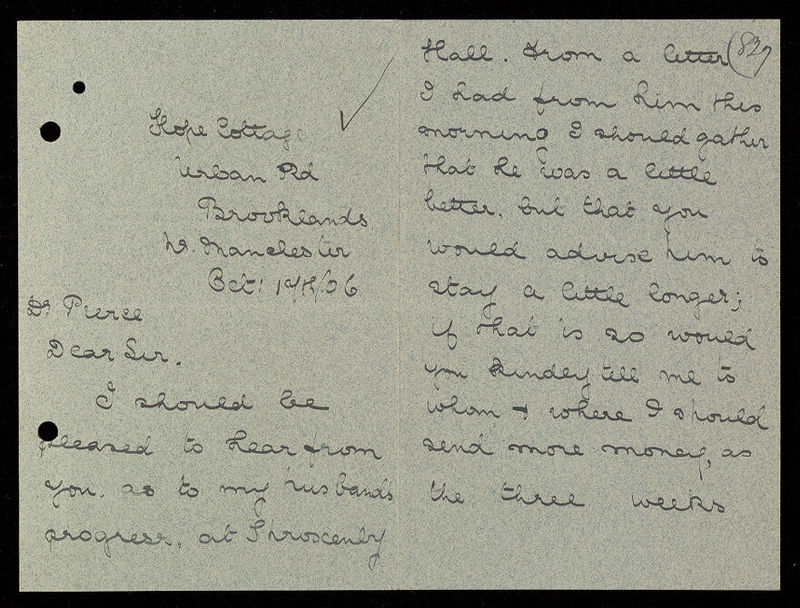 Hope Cottage
Urban Rd
Brooklands
Nr. Manchester
Oct: 19th/06
Dr Pierce
Dear Sir.
I should be
pleased to hear from
you. as to my husbands
progress. at Throxenby
Hall. From a letter
I had from him this
morning I should gather
that he was a little
better. but that you
would advise him to
stay a little longer;
if that is so would
you kindly tell me to
whom + where I should
send more money, as
the three weeks